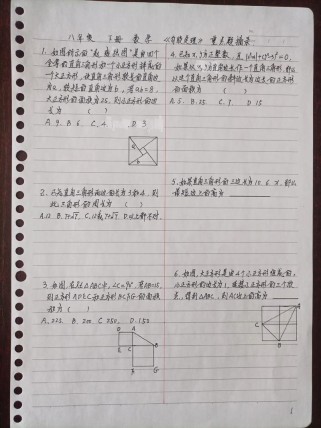 八年级 下册 数学 《勾股定理》 重点题摘录
1. 如图所示的"赵爽弦图"是由四个
全等直角三角形和一个小正方形拼成的
一个大正方形,设直角三角形较长的直角边
为a,较短的直角边为b,若ab=8,
大正方形的面积为25,则小正方形的边
长为 ( )
A. 9 B. 6 C. 4 D. 3
2. 已知直角三角形两边的长为3和4,则
此三角形的周长为 ( )
A. 12 B. 7+√7 C. 12或7+√7 D. 以上都不对
3. 如图,在Rt△ABC中,∠C=90°,若AB=15,
则正方形ADEC和正方形BCFG的面积
和为 ( )
A. 225 B. 200 C. 250 D. 150
D A
E C B
F G
4. 已知x,y为正整数,且
如果以x,y为直角边长作一个直角三角形,那么
以这个直角三角形的斜边长为边长的正方形
的面积为 ( )
A. 5 B. 25 C. 7 D. 15
5. 如果直角三角形的三边长为10、6、x,那么
最短边上的高为
6. 如图,大正方形是由4个小正方形组成的,
小正方形的边长为2,连接小正方形的三个顶
点,得到△ABC,则AC边上的高为
A
C
B
1